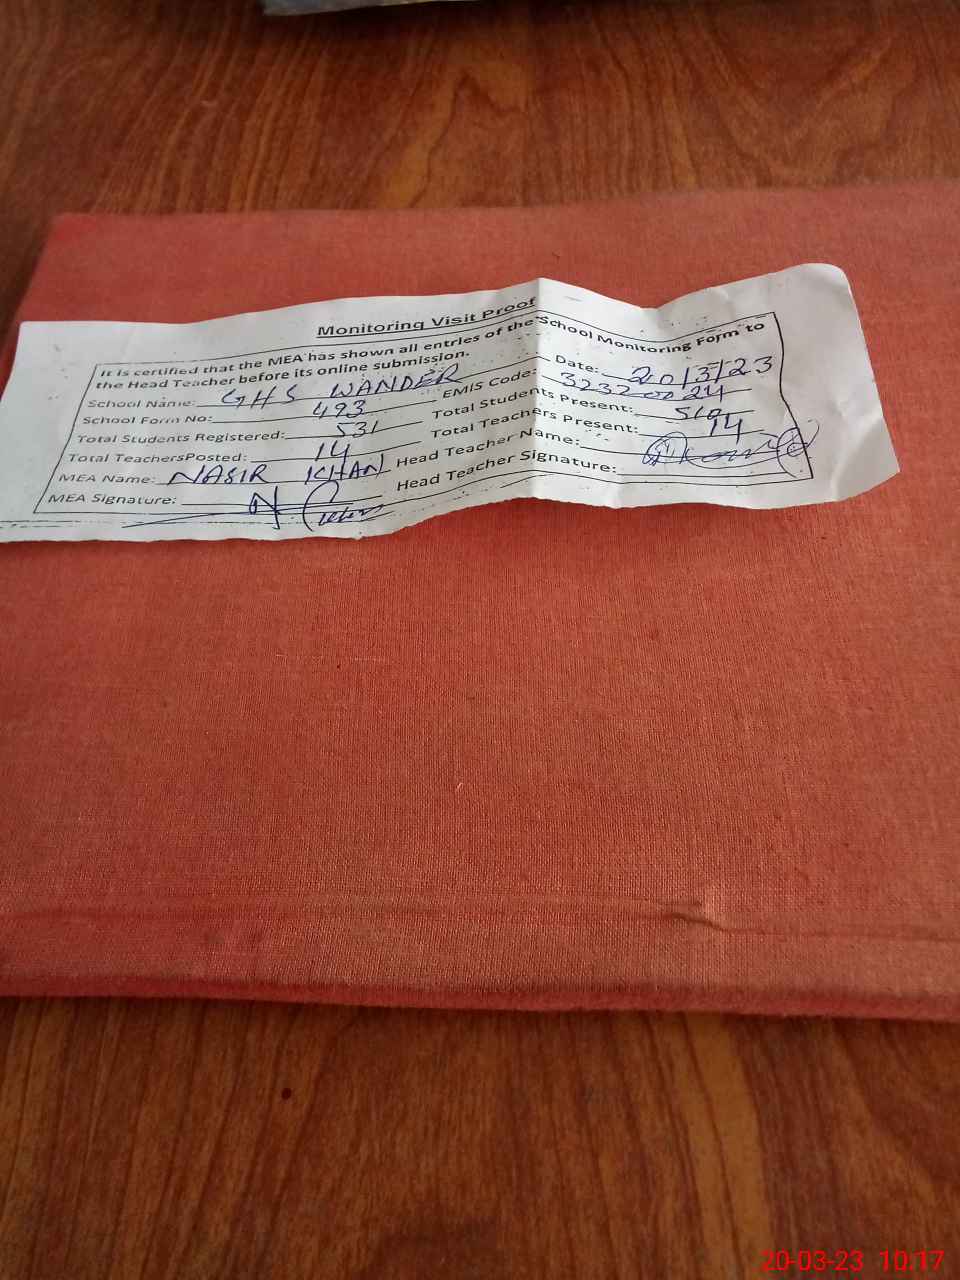 Monitoring Visit Proof
It is certified that the MEA has shown all entries of the School Monitoring Form to
the Head Teacher before its online submission.
Date: 20/3/23
School Name: GHS WANDER
EMIS Code: 32320024
School Form No: 493
Total Students Present: 510
Total Students Registered: 531
Total Teachers Present: 14
Total TeachersPosted: 14
Head Teacher Name:
MEA Name: NASIR KHAN
Head Teacher Signature:
MEA Signature:
20-03-23 10:17